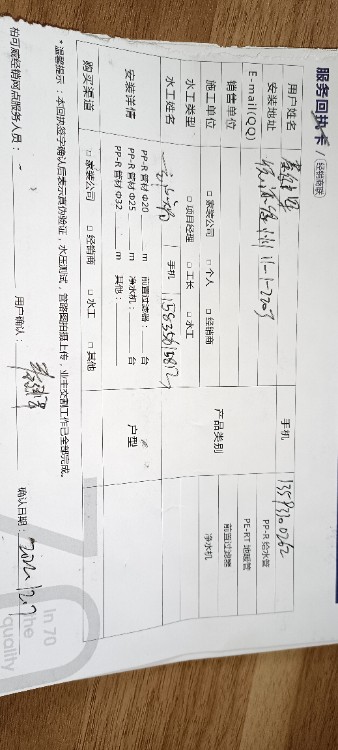 服务回执卡 (经销商联)
用户姓名 手机 13593100262
安装地址 11-1-2207 PP-R 给水管
E-mail(QQ) PE-RT 地暖管
销售单位 产品类别 前置过滤器
施工单位 □ 家装公司 □ 个人 □ 经销商 净水机
水工类型 □ 项目经理 □ 工长 □ 水工
水工姓名 手机
安装详情 PP-R 管材 Φ20 m 前置过滤器: 台 户型
PP-R 管材 Φ25 m 净水机: 台
PP-R 管材 Φ32 m 其他:
购买渠道 □ 家装公司 □ 经销商 □ 水工 □ 其他
*温馨提示:本回执签字确认后表示真伪验证,水压测试,管路图拍摄上传,业主交割工作已全部完成。
伯可威经销网点服务人员: 用户确认: 确认日期:
70
In 70
the
quality